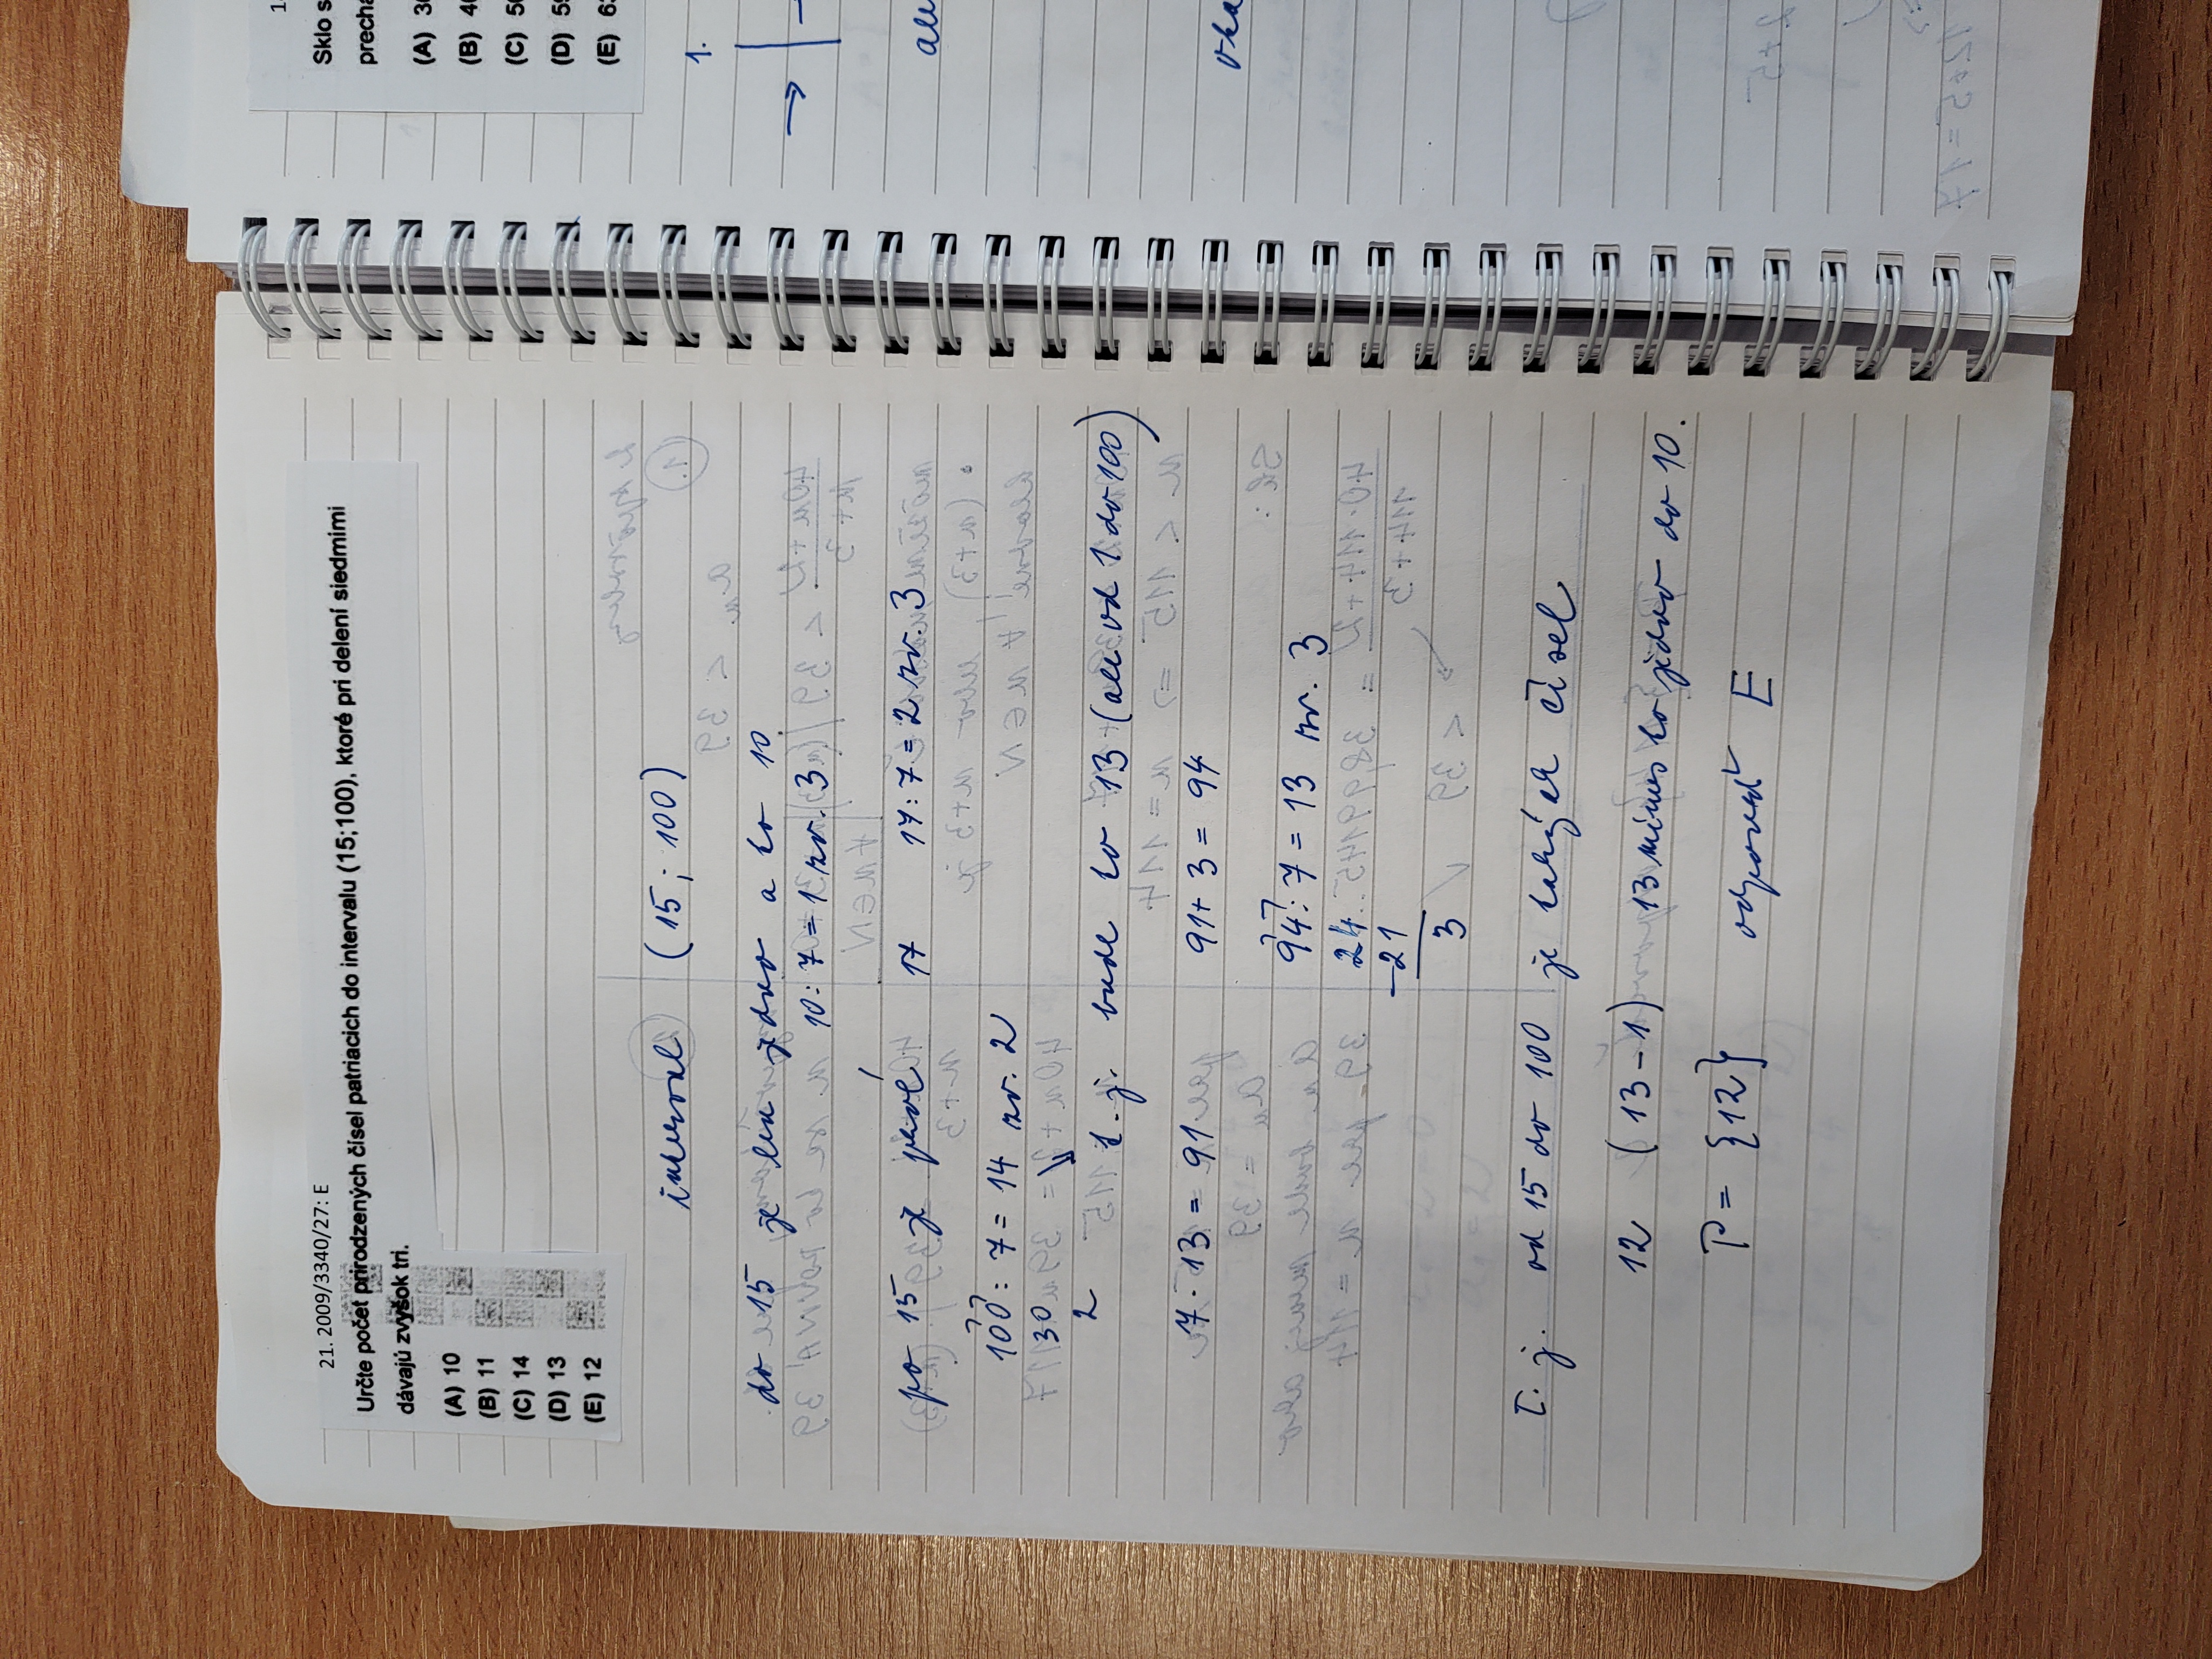 21. 2009/3340/27: E
Určte počet prirodzených čísel patriacich do intervalu (15;100), ktoré pri delení siedmimi
dávajú zvyšok tri.
(A) 10
(B) 11
(C) 14
(D) 13
(E) 12
interval (15; 100)
do 15 je len jedno a to 10
10 : 7 = 1 zv. 3
po 15 je prvé 17 17 : 7 = 2 zv. 3
100 : 7 = 14 zv. 2
30
2 t. j. bude to 13 (ale od 1 do 100)
7 · 13 = 91 91 + 3 = 94
94 : 7 = 13 zv. 3
24
-21
3
T. j. od 15 do 100 je takých čísel
12 (13 - 1) 13 mínus to jedno do 10.
P = {12} odpoveď E
Sklo s
(A)
(B)
(C)
(D)
(E)
1.
→